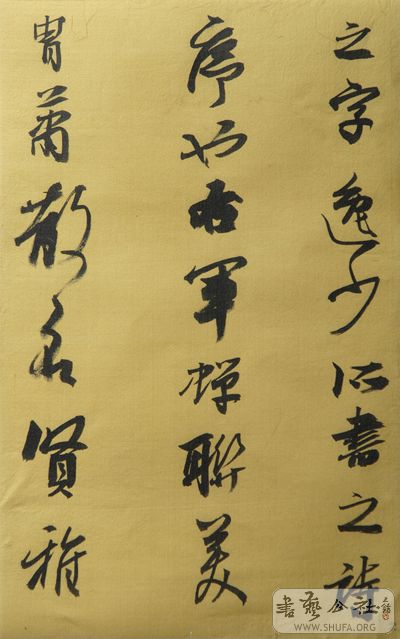 之字逸少所書之詩
序也右軍蟬聯美
胄蕭散名賢雅
書藝公社
WWW.SHUFA.ORG